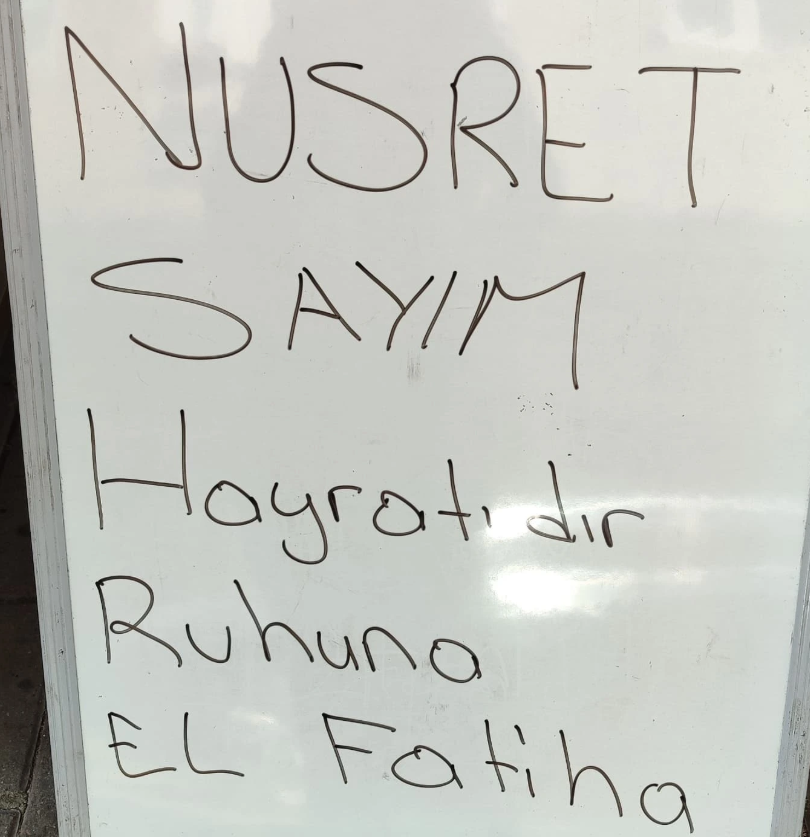 NUSRET
SAYIM
Hayratıdır
Ruhuna
EL Fatiha